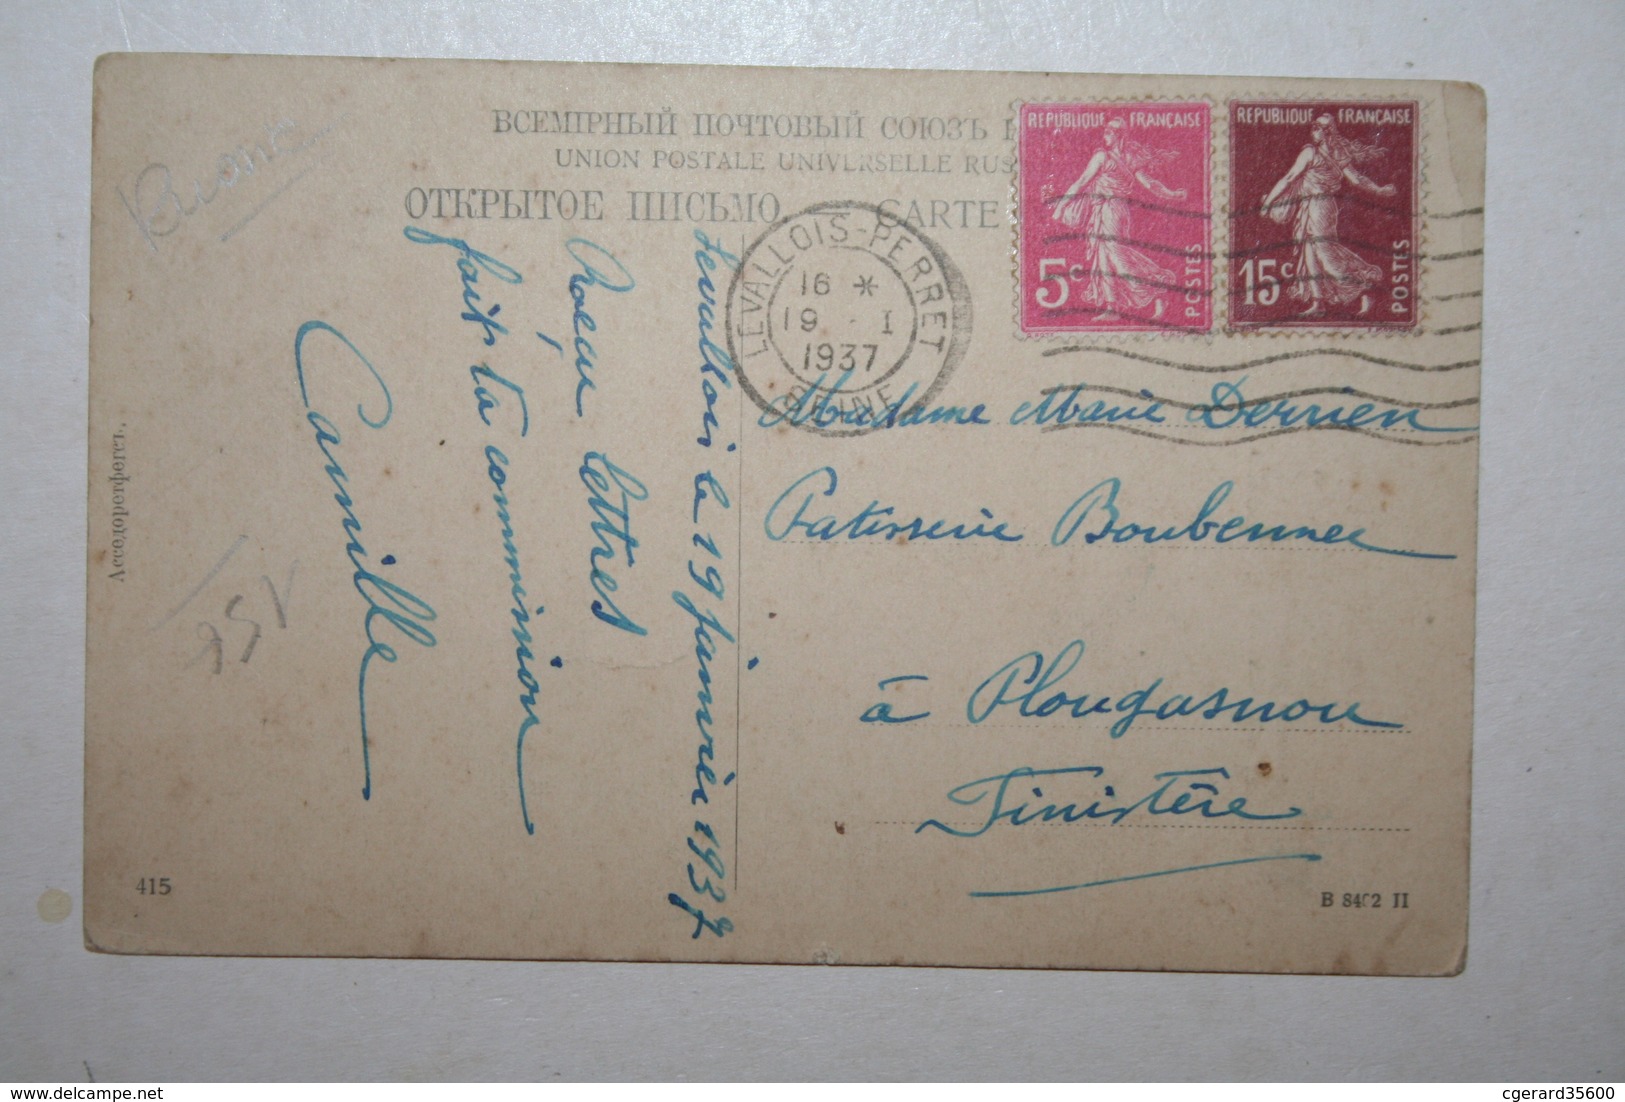 ВСЕМІРНЫЙ ПОЧТОВЫЙ СОЮЗЪ
UNION POSTALE UNIVERSELLE RUS
ОТКРЫТОЕ ПИСЬМО. — CARTE
REPUBLIQUE FRANÇAISE
5c
POSTES
REPUBLIQUE FRANÇAISE
15c
POSTES
LEVALLOIS-PERRET
16 *
19 - I
1937
SEINE
Levallois le 19 janvier 1937
Reçu lettres
fait ta commission
Camille
Madame Marie Derrien
Patisserie Boubennec
à Plougasnou
Finistère
415
B 8402 II
cgerard35600